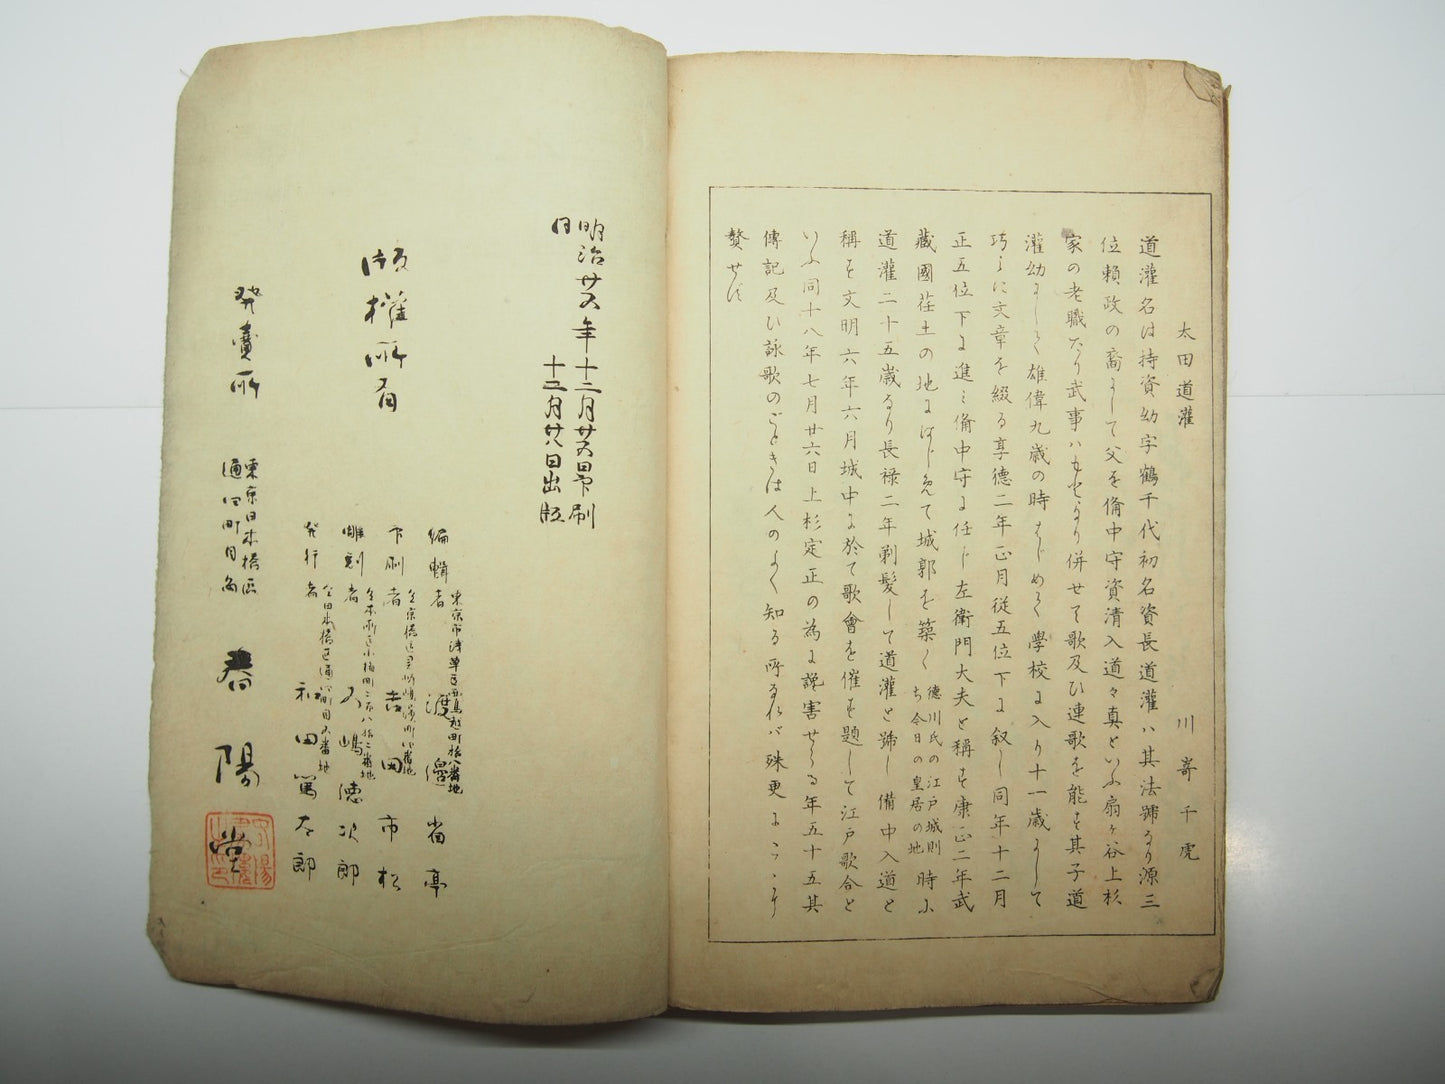 太田道灌
川嵜千虎
道灌名は持資幼字鶴千代初名資長道灌ハ其法號なり源三
位賴政の裔にして父を備中守資清入道々真といふ扇ヶ谷上杉
家の老職たり武事ハもとより併せて歌及ひ連歌を能す其子道
灌幼にして雄偉九歳の時はじめて學校に入り十一歳にして
巧みに文章を綴る享德二年正月従五位下に叙し同年十二月
正五位下に進ミ備中守に任じ左衛門大夫と稱す康正二年武
藏國荏土の地にはじめて城郭を築く
德川氏の江戸城則
ち今日の皇居の地
時に
道灌二十五歳なり長禄二年剃髪して道灌と號し備中入道と
稱す文明六年六月城中に於て歌會を催す題して江戸歌合と
いふ同十八年七月廿六日上杉定正の為に讒害せらる年五十五其
傳記及ひ詠歌のごときは人のよく知る所なれバ殊更にこゝに
贅せず
明治廿五年十二月廿五日印刷
同
十二月廿八日出版
版權所有
編輯者
渡邉省亭
印刷者
吉田市松
雕刻者
五嶋徳次郎
発行者
和田篤太郎
発賣所
東京日本橋区
通四町目角
春陽堂